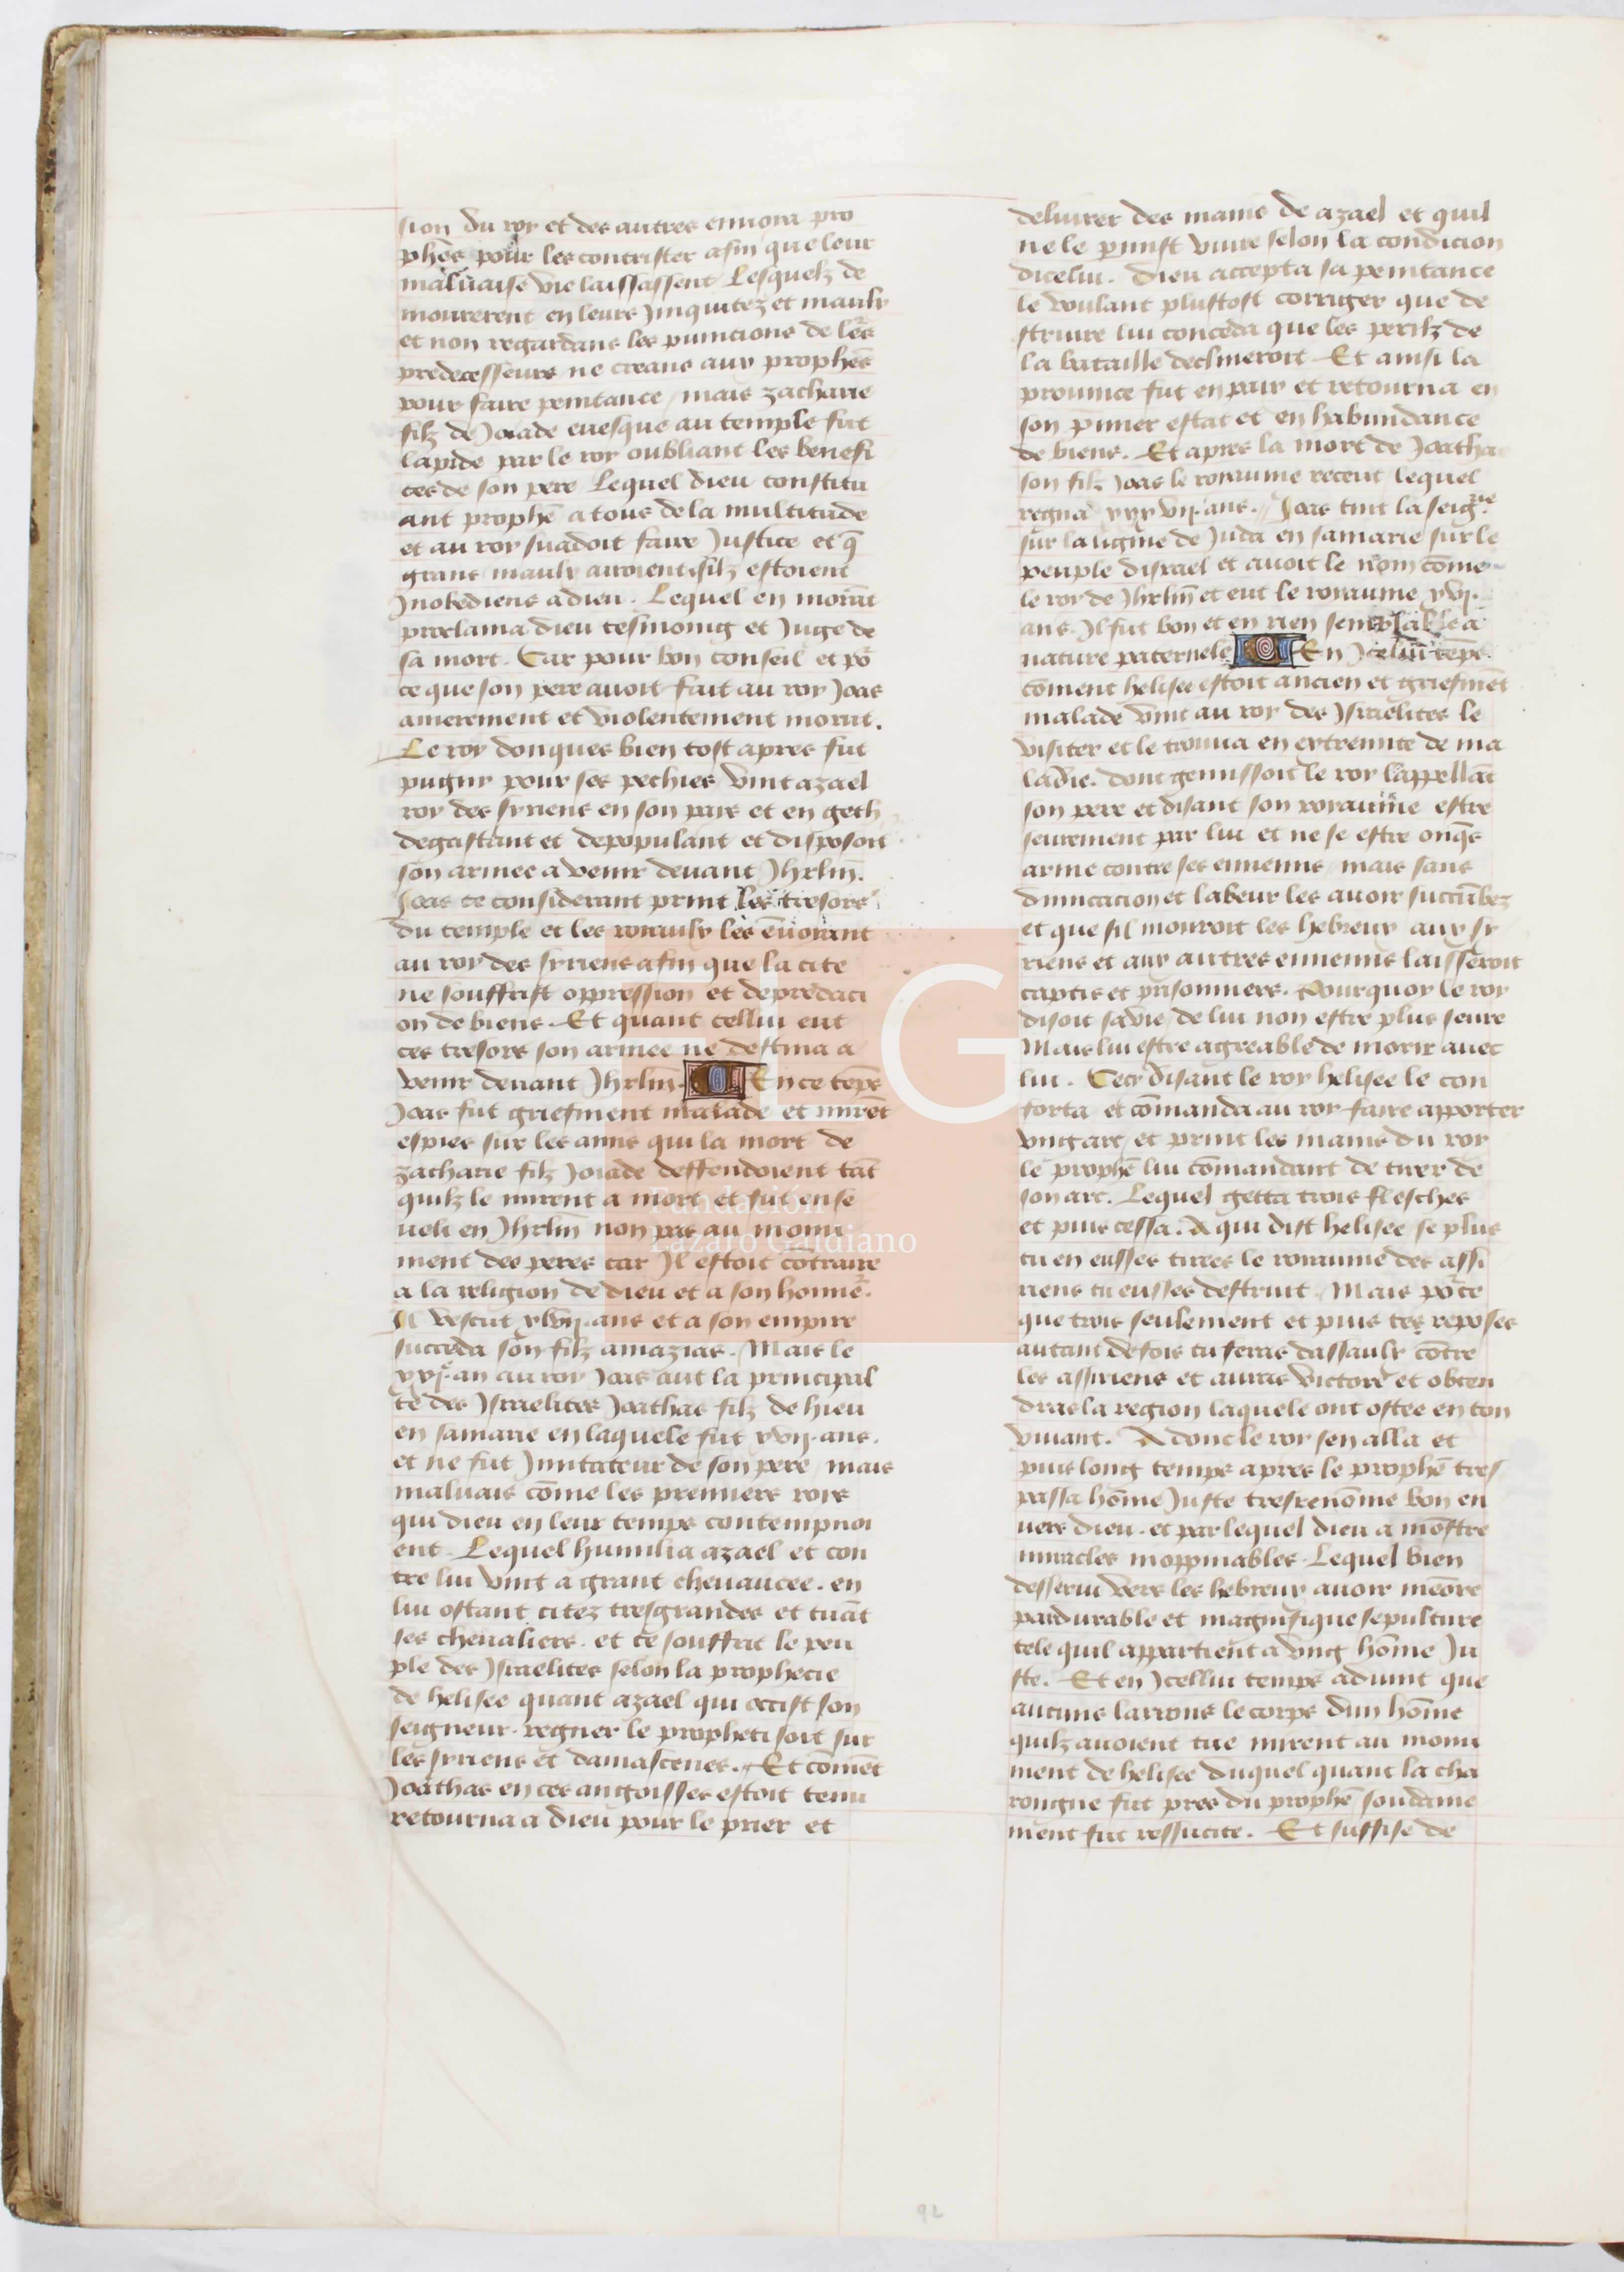 sion du roy et des autres enuoya pro
phēs pour les contrister afin que leur
maluaise vie laissassent Lesquelz de
mourerent en leurs Jniquitez et maulx
et non regardans les punicions de lers
predecesseurs ne creans aux prophēs
pour faire penitance / mais zacharie
filz de Joiade euesque au temple fut
lapide par le roy oubliant les benefi
ces de son pere Lequel dieu constitu
ant prophē a tous de la multitude
et au roy suadoit faire Justice et q̄
grans maulx auroient silz estoient
Jnobediens a dieu . Lequel en morāt
proclama dieu tesmoing et Juge de
sa mort . Car pour bon conseil et po
ce que son pere auoit fait au roy Joas
amerement et violentement morut .
Le roy donques bien tost apres fut
pugny pour ses pechies / vint azael
roy des syriens en son pais et en geth
degastant et depopulant et disposoit
son armee a venir deuant Jhrlm̄ .
Joas ce considerant print les tresors
du temple et les royaulx les enuoyant
au roy des syriens afin que la cite
ne souffrist oppression et depredaci
on de biens . Et quant cellui eut
ces tresors son armee ne destina a
venir deuant Jhrlm̄ . En ce tēps
Joas fut griefment malade et mirēt
espies sur les amis qui la mort de
zacharie filz Joiade deffendoient tāt
quilz le mirent a mort et fut ense
ueli en Jhrlm̄ non pas au monu
ment des peres car Jl estoit cōtraire
a la religion de dieu et a son honner .
Jl vescut xlvij . ans et a son empire
succeda son filz amazias . Mais le
xxj.e an du roy Joas eut la principal
te des Jsraelites Joathas filz de hieu
en samarie en laquele fut xvij . ans .
et ne fut Jmitateur de son pere / mais
maluais cōme les premiers rois
qui dieu en leur temps contempnoi
ent . Lequel humilia azael et con
tre lui vint a grant cheuaucee . en
lui ostant citez tresgrandes et tuāt
ses cheualiers . et ce souffrit le peu
ple des Jsraelites selon la prophecie
de helisee quant azael qui occist son
seigneur . regner le prophetisoit sur
les syriens et damascenes . Et cōmēt
Joathas en ces angoisses estoit tenu
retourna a dieu pour le prier et
deliurer des mains de azael et quil
ne le permist viure selon la condicion
dicelui . Dieu accepta sa penitance
le voulant plustost corriger que de
struire lui conceda que les perilz de
la bataille declineroit . Et ainsi la
prouince fut en paix et retourna en
son p̄mier estat et en habundance
de biens . Et apres la mort de Joatha
son filz Joas le royaume receut lequel
regna xxxvij . ans . Joas tint la seig.rie
sur la ligne de Juda en samarie sur le
peuple disrael et auoit le nom cōme
le roy de Jhrlm̄ et eut le royaume xvj .
ans . Jl fut bon et en rien semblable a
nature paternele En Jcellui tēps
cōment helisee estoit ancien et griefmēt
malade vint au roy des Jsraelites le
visiter et le trouua en extremite de ma
ladie . dont gemissoit le roy lappellāt
son pere et disant son royaume estre
seurement par lui et ne se estre onq̄s
arme contre ses ennemis / mais sans
dimicacion et labeur les auoir succūbez
et que sil mouroit les hebreux aux sy
riens et aux autres ennemis laisseroit
captis et prisonniers . Pourquoy le roy
disoit sa vie de lui non estre plus seure
Mais lui estre agreable de morir auec
lui . Cecy disant le roy helisee le con
forta et cōmanda au roy faire apporter
vng arc et print les mains du roy
le prophē lui cōmandant de tirer de
son arc . Lequel getta trois flesches
et puis cessa . A qui dist helisee se plus
tu en eusses tirees le royaume des assi
riens tu eusses destruit . Mais po ce
que trois seulement et puis tes reposes
autant de fois tu feras dassaulx cōtre
les assiriens et auras victore et obten
dras la region laquele ont ostee en ton
viuant . A donc le roy sen alla et
puis long temps apres le prophē tres
passa hōme Juste tresrenōme bon en
uers dieu . et par lequel dieu a mōstre
miracles inoppinables . Lequel bien
desserui vers les hebreux auoir meōre
pardurable et magnifique sepulture
tele quil appartient a vng hōme Ju
ste . Et en Jcellui temps aduint que
aucuns larrons le corps dun hōme
quilz auoient tue mirent au monu
ment de helisee duquel quant la cha
rongne fut pres du prophē soudaine
ment fut ressucite . Et suffise de
FLG
Fundación
Lázaro Galdiano
92